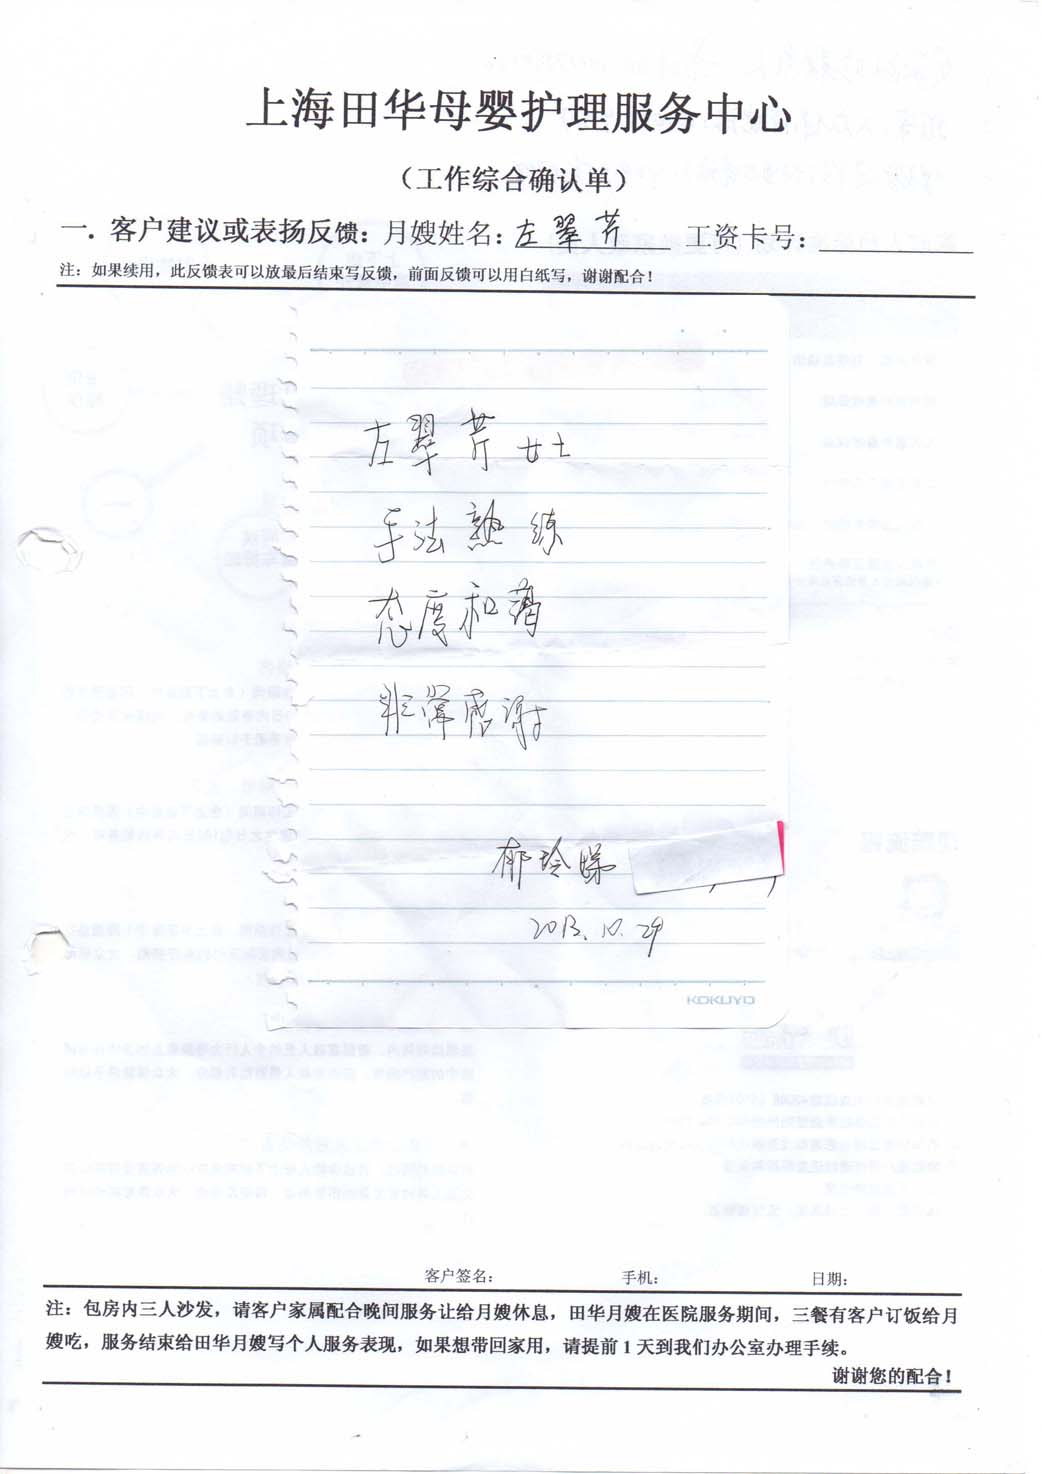 上海田华母婴护理服务中心
（工作综合确认单）
一．客户建议或表扬反馈：月嫂姓名：左翠芹 工资卡号：
注：如果续用，此反馈表可以放最后结束写反馈，前面反馈可以用白纸写，谢谢配合！
左翠芹女士
手法熟练
态度和蔼
非常感谢
郁玲
2013.10.29
KOKUYO
客户签名： 手机： 日期：
注：包房内三人沙发，请客户家属配合晚间服务让给月嫂休息，田华月嫂在医院服务期间，三餐有客户订饭给月
嫂吃，服务结束给田华月嫂写个人服务表现，如果想带回家用，请提前1天到我们办公室办理手续。
谢谢您的配合！